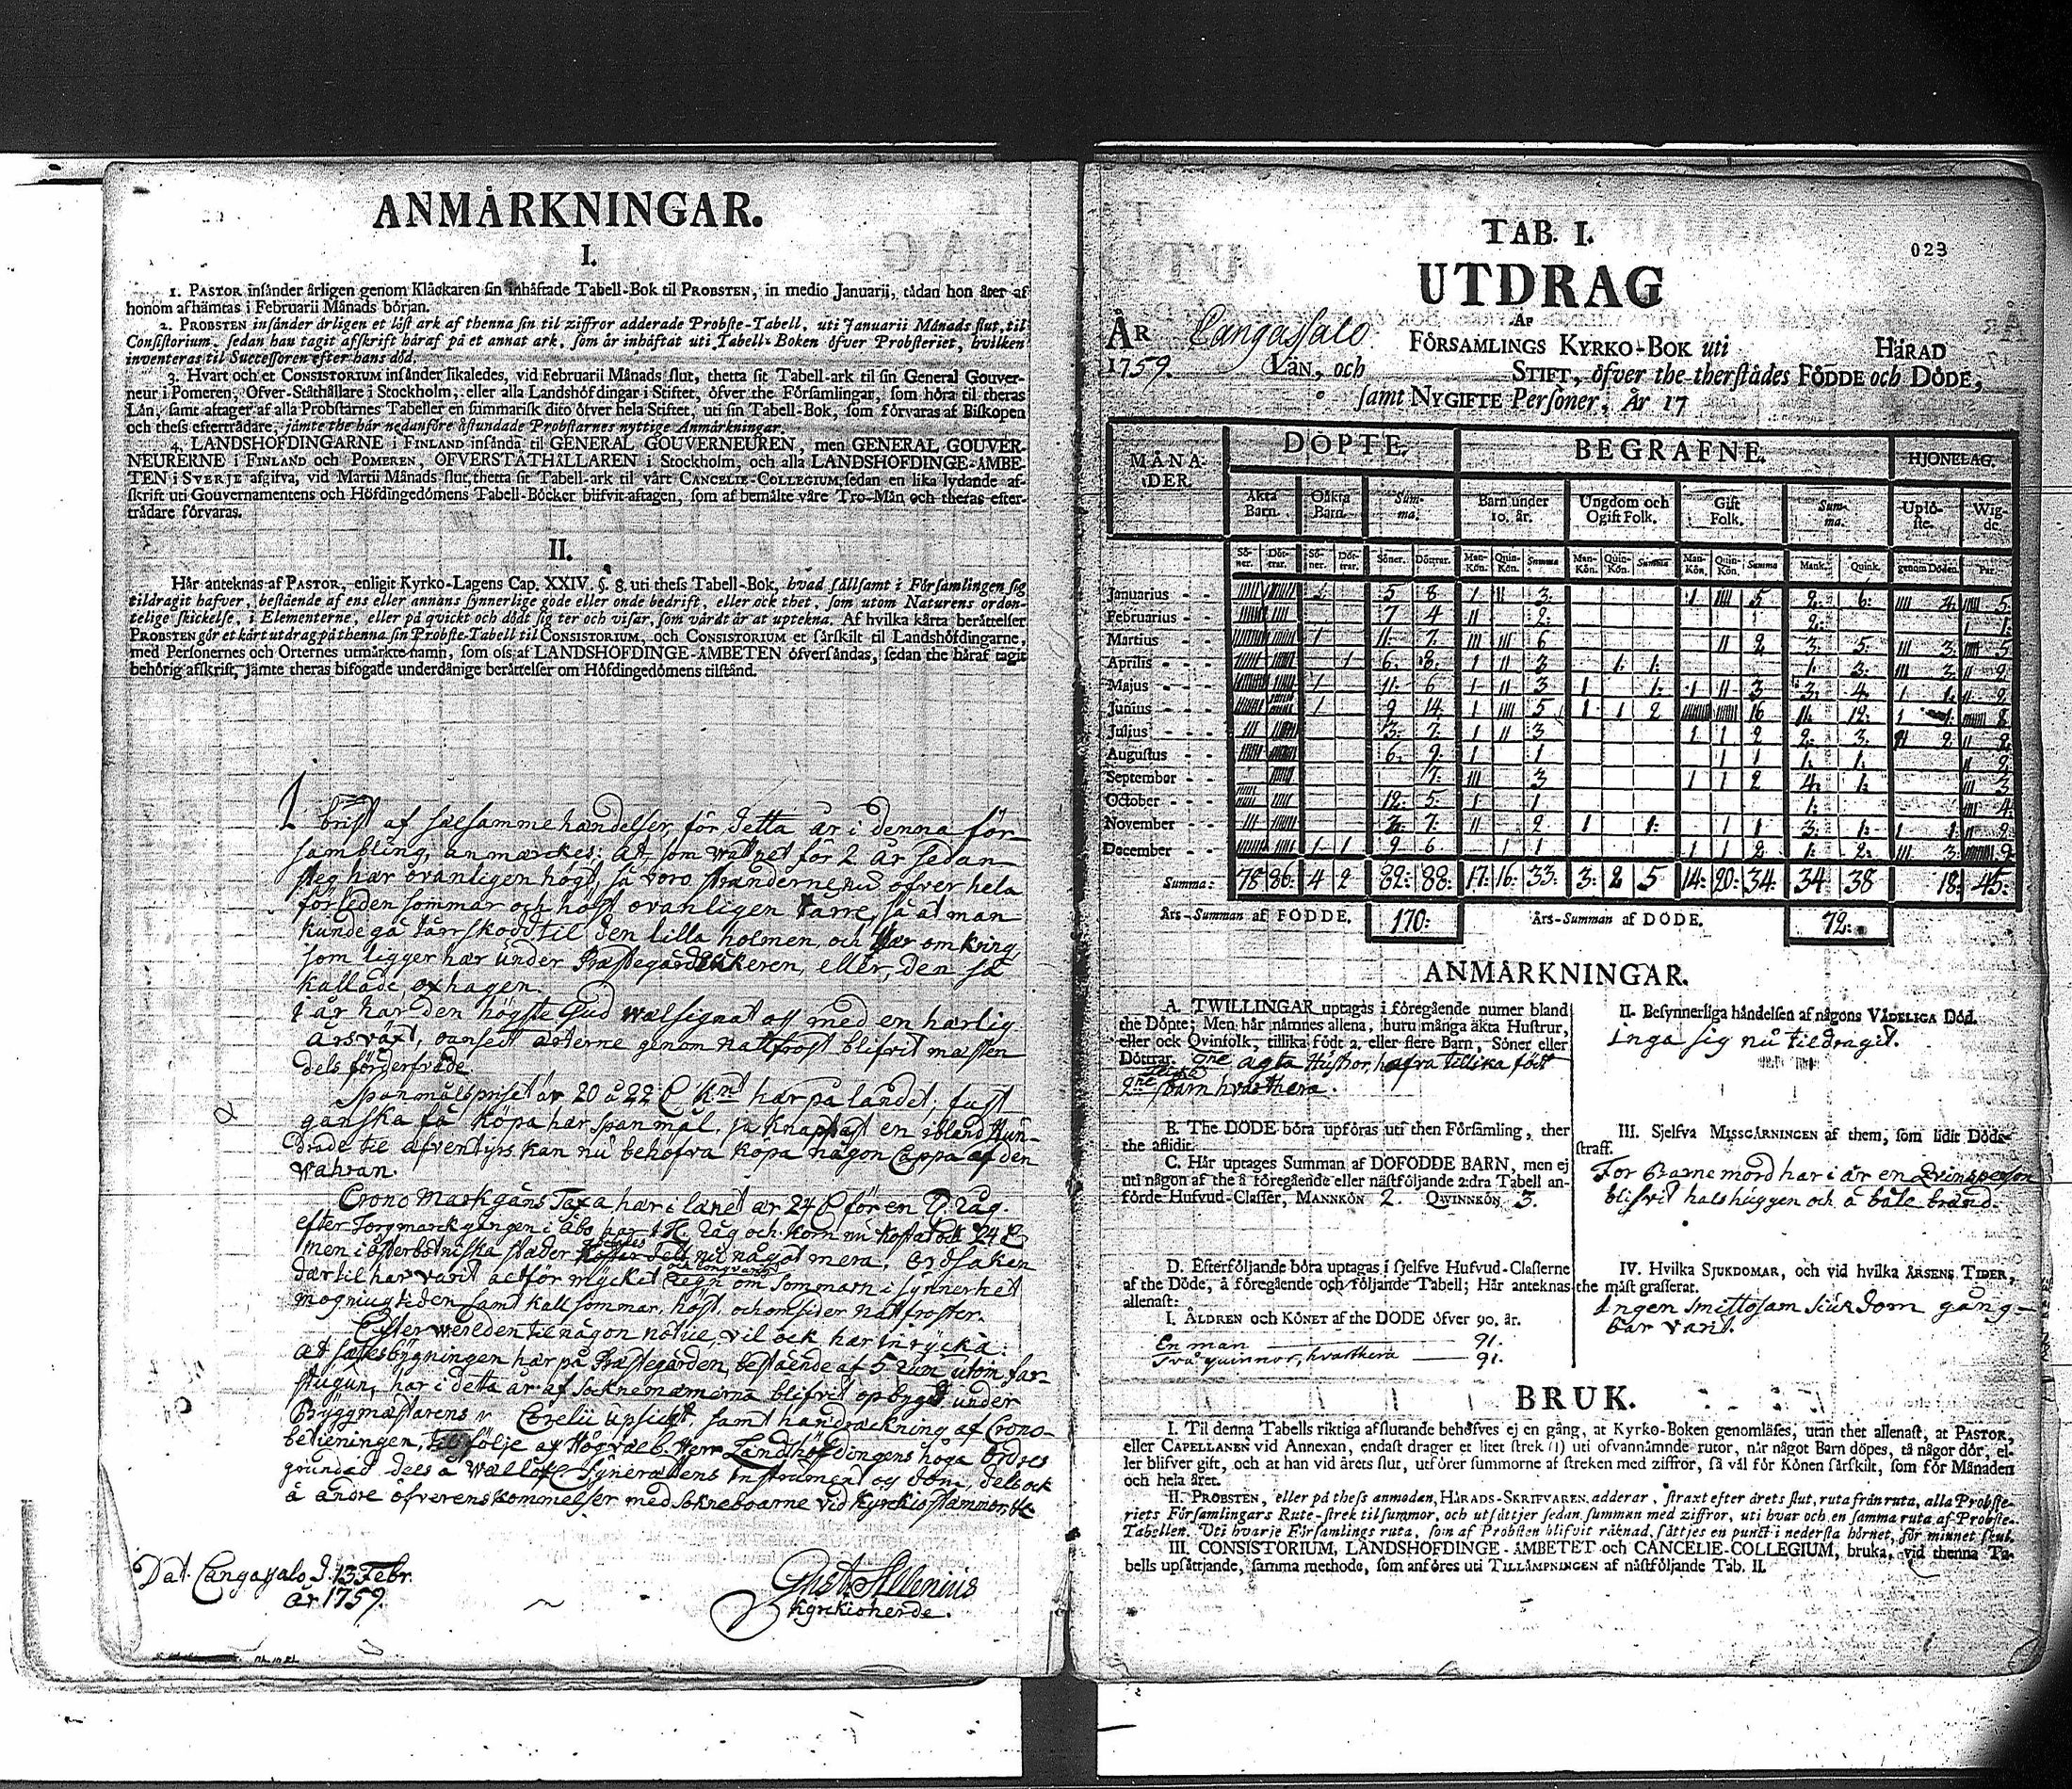 ANMÄRKNINGAR.
I.
1. PASTOR insånder årligen genom Klåckaren sin inhåftade Tabell-Bok til PROBSTEN, in medio Januarii, tådan hon åter af
honom afhämtas i Februarii Månads början.
2. PROBSTEN insånder årligen et löst ark af thenna sin til ziffror adderade Probste-Tabell, uti Januarii Månads slut, til
Consistorium, sedan han tagit afskrift häraf på et annat ark, som är inhåftat uti Tabell-Boken öfver Probsteriet, hvilken
inventeras til Successoren efter hans död.
3. Hvart och et CONSISTORIUM insånder likaledes, vid Februarii Månads slut, thetta sit Tabell-ark til sin General Gouver-
neur i Pomeren, Öfver-Ståthållare i Stockholm, eller alla Landshöfdingar i Stiftet, öfver the Församlingar, som höra til theras
Län, samt aftager af alla Probstarnes Tabeller en summarisk dito öfver hela Stiftet, uti sin Tabell-Bok, som förvaras af Biskopen
och thess efterträdare, jämte the här nedanföre åstundade Probstarnes nyttige Anmärkningar.
4. LANDSHÖFDINGARNE i FINLAND insånda til GENERAL GOUVERNEUREN, men GENERAL GOUVER-
NEURERNE i FINLAND och POMEREN, ÖFVERSTÅTHÅLLAREN i Stockholm, och alla LANDSHÖFDINGE-ÄMBE-
TEN i SVERJE afgifva, vid Martii Månads slut, thetta sit Tabell-ark til vårt CANCELIE-COLLEGIUM, sedan en lika lydande af-
skrift uti Gouvernamentens och Höfdingedömens Tabell-Böcker blifvit aftagen, som af bemälte våre Tro-Män och theras efter-
trädare förvaras.
II.
Här anteknas af PASTOR, enligit Kyrko-Lagens Cap. XXIV. §. 8. uti thess Tabell-Bok, hvad sällsamt i Församlingen sig
tildragit hafver, bestående af ens eller annans synnerlige gode eller onde bedrift, eller ock thet, som utom Naturens orden-
telige skickelse, i Elementerne, eller på quickt och dödt sig ter och visar, som vårdt är at uptekna. Af hvilka kårta berättelser
PROBSTEN gör et kårt utdrag på thenna sin Probste-Tabell til CONSISTORIUM, och CONSISTORIUM et sårskilt til Landshöfdingarne,
med Personernes och Orternes utmärkte namn, som oss af LANDSHÖFDINGE-ÄMBETEN öfversåndas, sedan the häraf tagit
behörig afskrift, jämte theras bifogade underdånige berättelser om Höfdingedömens tilstånd.
I brist af sælsamme handelser, för detta år i denna för-
sambling, anmærckes; at, som watnet för 2 år sedan
steg har ovanligen högt, så voro stranderne nu öfver hela
förleden sommar och höst ovanligen tarre, så at man
kunde gå tårrskodd til den lilla holmen, och der omkring
som ligger har under Præstegårds åkeren, eller, den så
kallade oxhagen.
I år har den högste Gud wælsignat oss med en harlig
årsväxt, oansedt ärterne genom nattfrost blifvit mæsten
dels förderfvade.
Spanmåls priset är 20 à 22 kmt har på landet, fast
ganska få köpa har spanmål, ja knappast en ibland Hun-
drade til äfventyrs kan nu behöfva köpa någon Cappa af den
wahran.
Crono Markgångs Taxa har i lænet ær 24 för en T. råg.
efter Torgmarckgången i Åbo har 1 T. råg och korn nu kostat ock 24
men i österbotniska stæder nu något mera, Ordsaken
dærtil har varit altför mycket regn om sommarn i synnerhet
mogningstiden samt kall sommar, höst, och omsider nattfroster.
Efter wereden til någon notice, vil ock har inryckia:
at sætesbygningen har på Præstegården, bestående af 5 rum utom far-
stugun, har i detta år af socknemænnerna blifvit opbygd under
Byggmästarens Corelii upsigt, samt handræckning af Crono-
betieningen, til följe af Högvælb. Herr Landshöfdingens höga ordres
grundad dels å wællofl. Synerættens Instrument och dom, dels ock
å andre öfverenskommelser med sokneboarne vid Kyrckiostämnor, etc
Dat. Cangasalo d. 13 Febr.
år 1759.
Gust. Allenius
Kyrckioherde.
023
TAB. I.
UTDRAG
AF
ÅR Cangassalo FÖRSAMLINGS KYRKO-BOK uti HÄRAD
1759. LÄN, och STIFT, öfver the therstädes FÖDDE och DÖDE,
samt NYGIFTE Personer, År 17
MÅNA-DER. DÖPTE. BEGRAFNE. HJONELAG.
Äkta Barn. Oäkta Barn. Summa. Barn under 10. år. Ungdom och Ogift Folk. Gift Folk. Summa. Uplöste. Wigde.
Söner. Döttrar. Söner. Döttrar. Söner. Döttrar. Mankön. Quinkön. Summa Mankön. Quinkön. Summa Mankön. Quinkön. Summa Mank. Quink. genom Döden. Par.
Januarius - - 5 8 3 5 2. 6. 4. 5
Februarius - - 7 4 2. 2. 1.
Martius - - 11. 7. 6 2 3. 5. 3. 5
Aprilis - - 6. 8. 3 1. 1. 3. 3. 2
Majus - - 11. 6 3 1. 3 3. 4. 1. 2
Junius - - 9 14. 5 2 16 11. 12. 1. 8
Julius - - 3. 7. 3 2 2. 3. 2 2
Augustus - - 6. 9. 1 1 1. 1. 2
September - - 7. 3 2 4. 1. 3
October - - 12. 5. 1 1. 4
November - - 3. 7. 2 1. 1 3. 1. 1. 2
December - - 9 6 1 2 1. 2. 3. 9
Summa: 78 86 4 2 82: 88: 17. 16. 33: 3: 2 5 14: 20: 34: 34 38 18: 45:
Års-Summan af FÖDDE. 170: Års-Summan af DÖDE. 72:
ANMÄRKNINGAR.
A. TWILLINGAR uptagas i föregående numer bland
the Döpte; Men här nämnes allena, huru många äkta Hustrur,
eller ock Qvinfolk, tillika födt 2, eller flere Barn, Söner eller
Döttrar. 2ne ägta Hustror hafva tillika födt
2ne barn hvarthera.
B. The DÖDE böra upföras uti then Församling, ther
the aflidit.
C. Här uptages Summan af DÖFÖDDE BARN, men ej
uti någon af the å föregående eller nästföljande 2:dra Tabell an-
förde Hufvud-Classer, MANNKÖN 2. QWINNKÖN 3.
D. Efterföljande böra uptagas i sjelfve Hufvud-Classerne
af the Döde, å föregående och följande Tabell; Här anteknas
allenast:
I. ÅLDREN och KÖNET af the DÖDE öfver 90. år.
En man — 91.
Två quinnor, hvarthera — 91.
II. Besynnerliga händelsen af någons VÅDELIGA Död.
Inga sig nu tildragit.
III. Sjelfva MISSGÄRNINGEN af them, som lidit Döds-
straff.
For Barnemord har i år en Qvinsperson
blifvit halshuggen och å båle bränd.
IV. Hvilka SJUKDOMAR, och vid hvilka ÅRSENS TIDER,
the mäst grasserat.
Ingen smittosam siukdom gång-
bar varit.
BRUK.
I. Til denna Tabells riktiga afslutande behöfves ej en gång, at Kyrko-Boken genomläses, utan thet allenast, at PASTOR,
eller CAPELLANEN vid Annexan, endast drager et litet strek (1) uti ofvannämnde rutor, när något Barn döpes, tå någor dör, el-
ler blifver gift, och at han vid årets slut, utförer summorne af streken med ziffror, så väl för Könen särskilt, som för Månaden
och hela året.
II. PROBSTEN, eller på thess anmodan, HÄRADS-SKRIFVAREN, adderar, straxt efter årets slut, ruta från ruta, alla Probste-
riets Församlingars Rute-strek til summor, och utsättjer sedan summan med ziffror, uti hvar och en samma ruta af Probste-
Tabellen. Uti hvarje Församlings ruta, som af Probsten blifvit räknad, sättjes en punct i nederste hörnet, för minnet skul.
III. CONSISTORIUM, LANDSHÖFDINGE-ÄMBETET och CANCELIE-COLLEGIUM, bruka, vid thenna Ta-
bells upsättjande, samma methode, som anföres uti TILLÄMPNINGEN af nästföljande Tab. II.